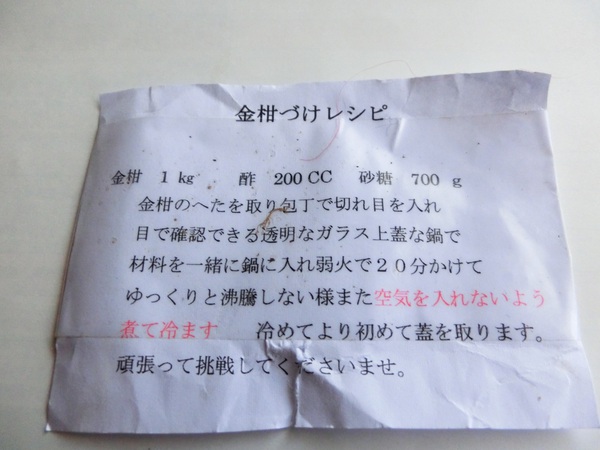 金柑づけレシピ
金柑 1㎏ 酢 200CC 砂糖 700g
金柑のへたを取り包丁で切れ目を入れ
目で確認できる透明なガラス上蓋な鍋で
材料を一緒に鍋に入れ弱火で２０分かけて
ゆっくりと沸騰しない様また空気を入れないよう
煮て冷ます 冷めてより初めて蓋を取ります。
頑張って挑戦してくださいませ。